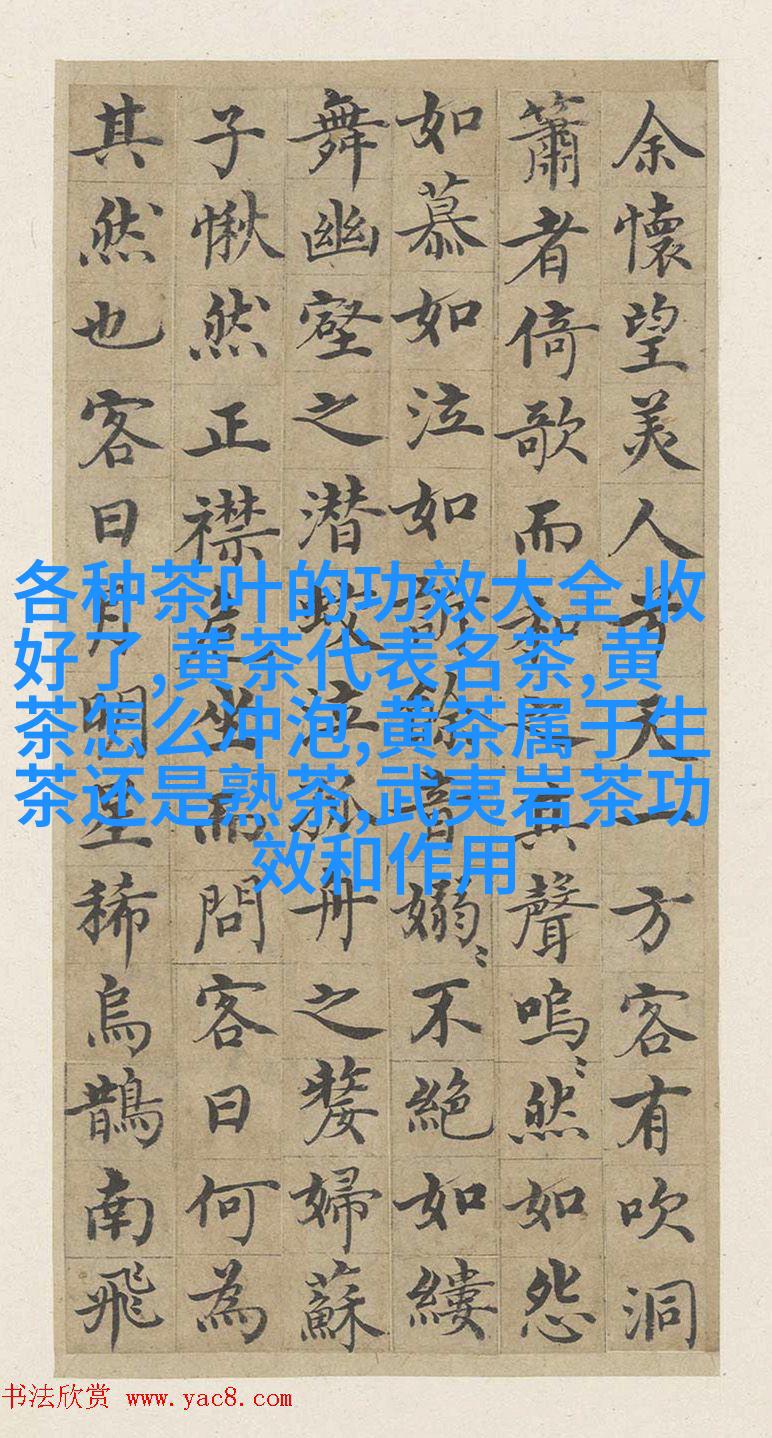 余懷望美人兮天一方客有吹洞
簫者倚歌而和之其聲嗚〻然如怨
如慕如泣如訴餘音嫋〻不絕如縷
舞幽壑之潜蛟泣孤舟之嫠婦蘇
子愀然正襟危坐而問客曰何為
其然也客曰月明星稀烏鵲南飛
各种茶叶的功效大全 收
好了,黄茶代表名茶,黄
茶怎么冲泡,黄茶属于生
茶还是熟茶,武夷岩茶功
效和作用
书法欣赏 www.yac8.com